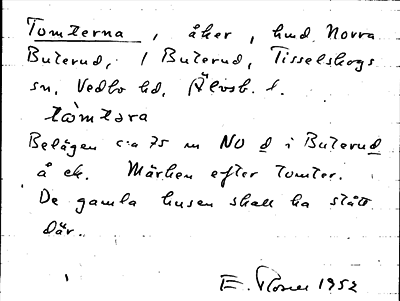 Tomterna, åker, hmd. Norra
Buterud, 1 Buterud, Tisselskogs
sn, Vedbo hd, Älvsb. l.
Belägen c:a 75 m NO d i Buterud
å ek. Märken efter tomter.
De gamla husen skall ha stått
där.
E. 1952